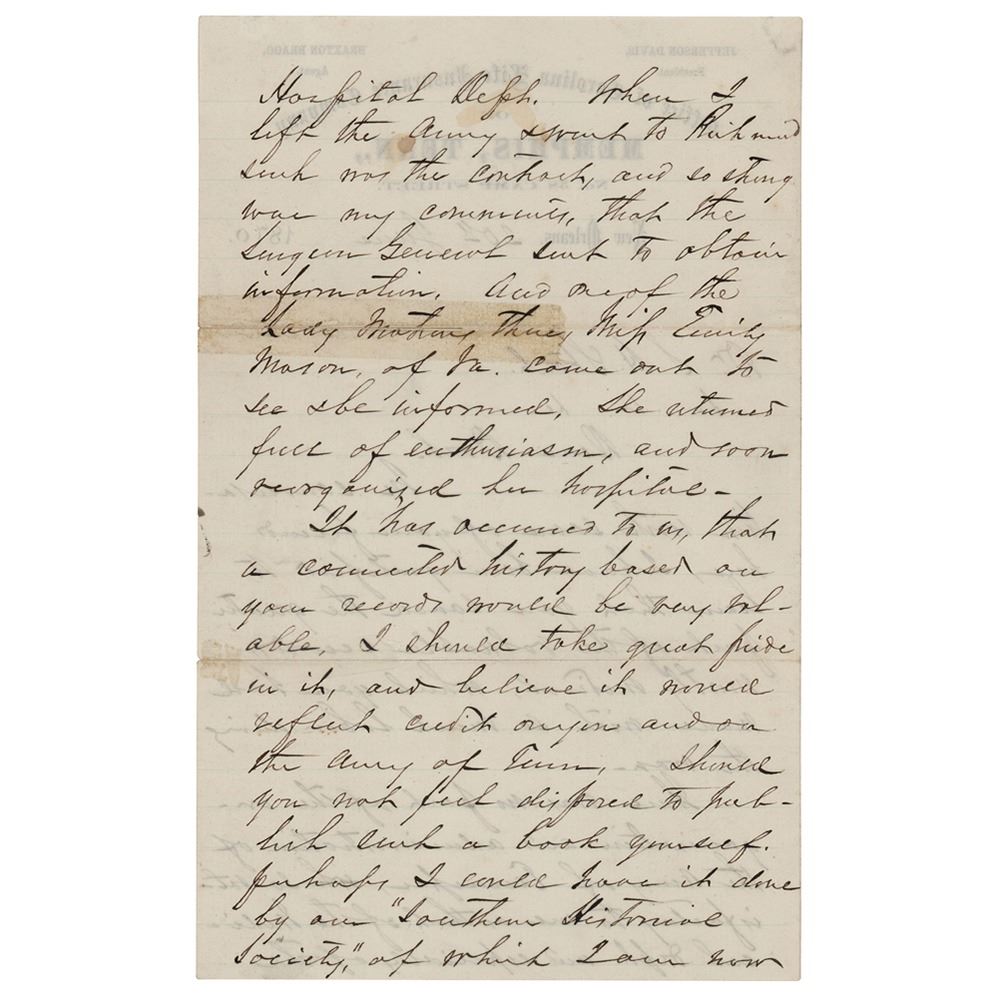 Hospital Dept. When I
left the Army & went to Richmond
such was the contract, and so strong
was my comments, that the
Surgeon General sent to obtain
information. And one of the
Lady Matrons there, Miss Emily
Mason, of Va. came out to
see & be informed. She returned
full of enthusiasm, and soon
reorganized her hospital -
It has occurred to us, that
a connected history based on
your records would be very val-
able. I should take great pride
in it, and believe it would
reflect credit on you and on
the Army of Tenn. Should
you not feel disposed to pub-
lish such a book yourself.
perhaps I could have it done
by our "Southern Historical
Society," of which I am now
JEFFERSON DAVIS,
President.
BRAXTON BRAGG,
Agent.
Carolina Life Insurance Company,
OF
MEMPHIS, TENN.,
No. 58 CAMP STREET.
New Orleans, 187